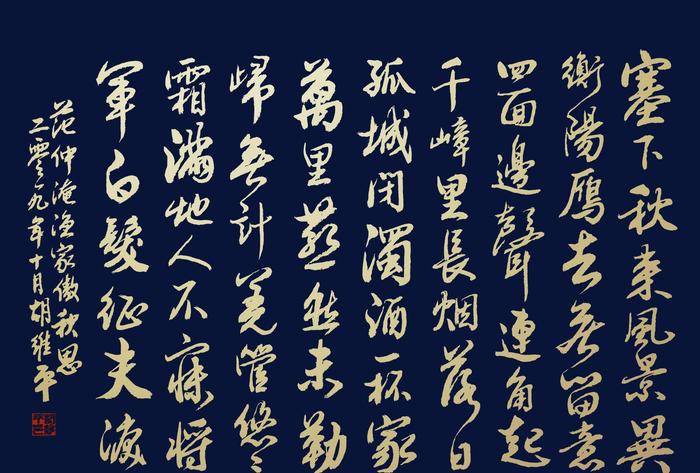 塞下秋来風景異
衡陽雁去無留意
四面邊聲連角起
千嶂里長烟落日
孤城閉濁酒一杯家
萬里燕然未勒
歸無計羌管悠〻
霜滿地人不寐將
軍白髮征夫淚
范仲淹漁家傲秋思
二零一九年十月胡維平